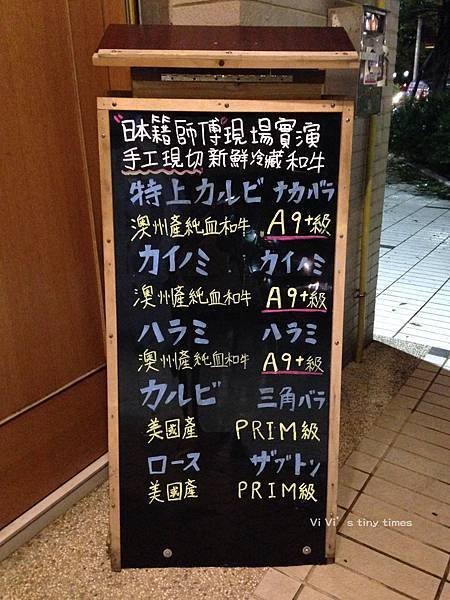 "日本籍師傅"現場實演
手工現切新鮮冷藏和牛
特上カルビ ナカバラ
澳州產純血和牛 A9+級
カイノミ カイノミ
澳州產純血和牛 A9+級
ハラミ ハラミ
澳州產純血和牛 A9+級
カルビ 三角バラ
美國產 PRIM級
ロース ザブトン
美國產 PRIM級
Vi Vi's tiny times